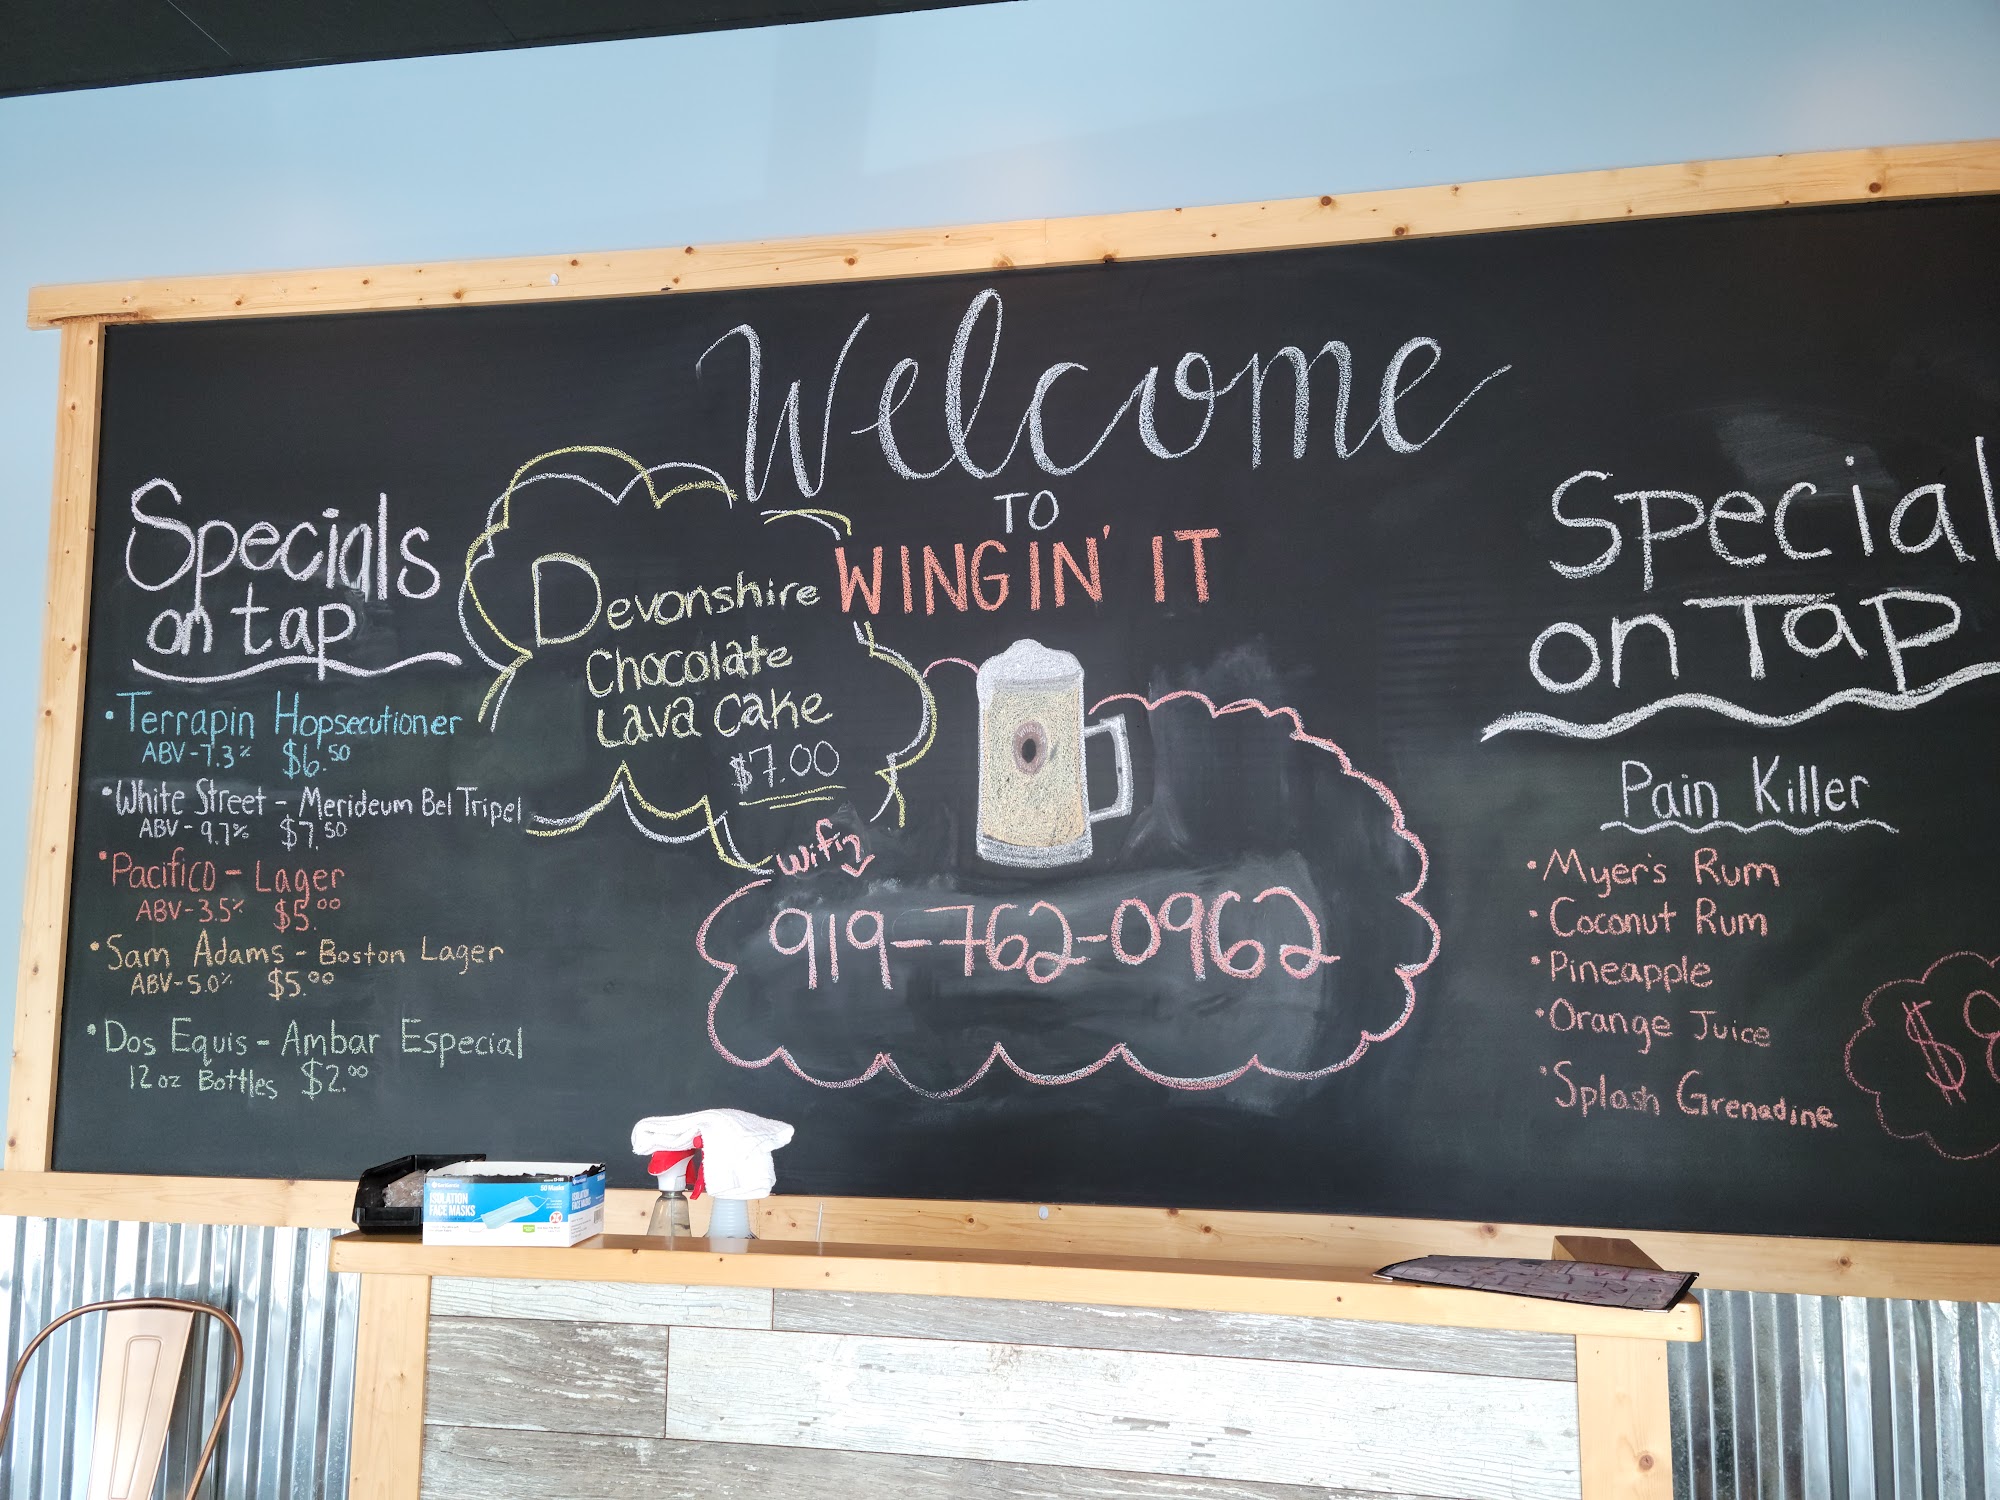 Welcome
TO
WINGIN' IT
Specials
on tap
• Terrapin Hopsecutioner
ABV-7.3% $6.50
• White Street - Merideum Bel Tripel
ABV-9.7% $7.50
• Pacifico - Lager
ABV-3.5% $5.00
• Sam Adams - Boston Lager
ABV-5.0% $5.00
• Dos Equis - Ambar Especial
12oz Bottles $2.00
Devonshire
Chocolate
Lava Cake
$7.00
wifi
919-762-0962
Special
on TAP
Pain Killer
• Myer's Rum
• Coconut Rum
• Pineapple
• Orange Juice
• Splash Grenadine
50 Masks
ISOLATION
FACE MASKS